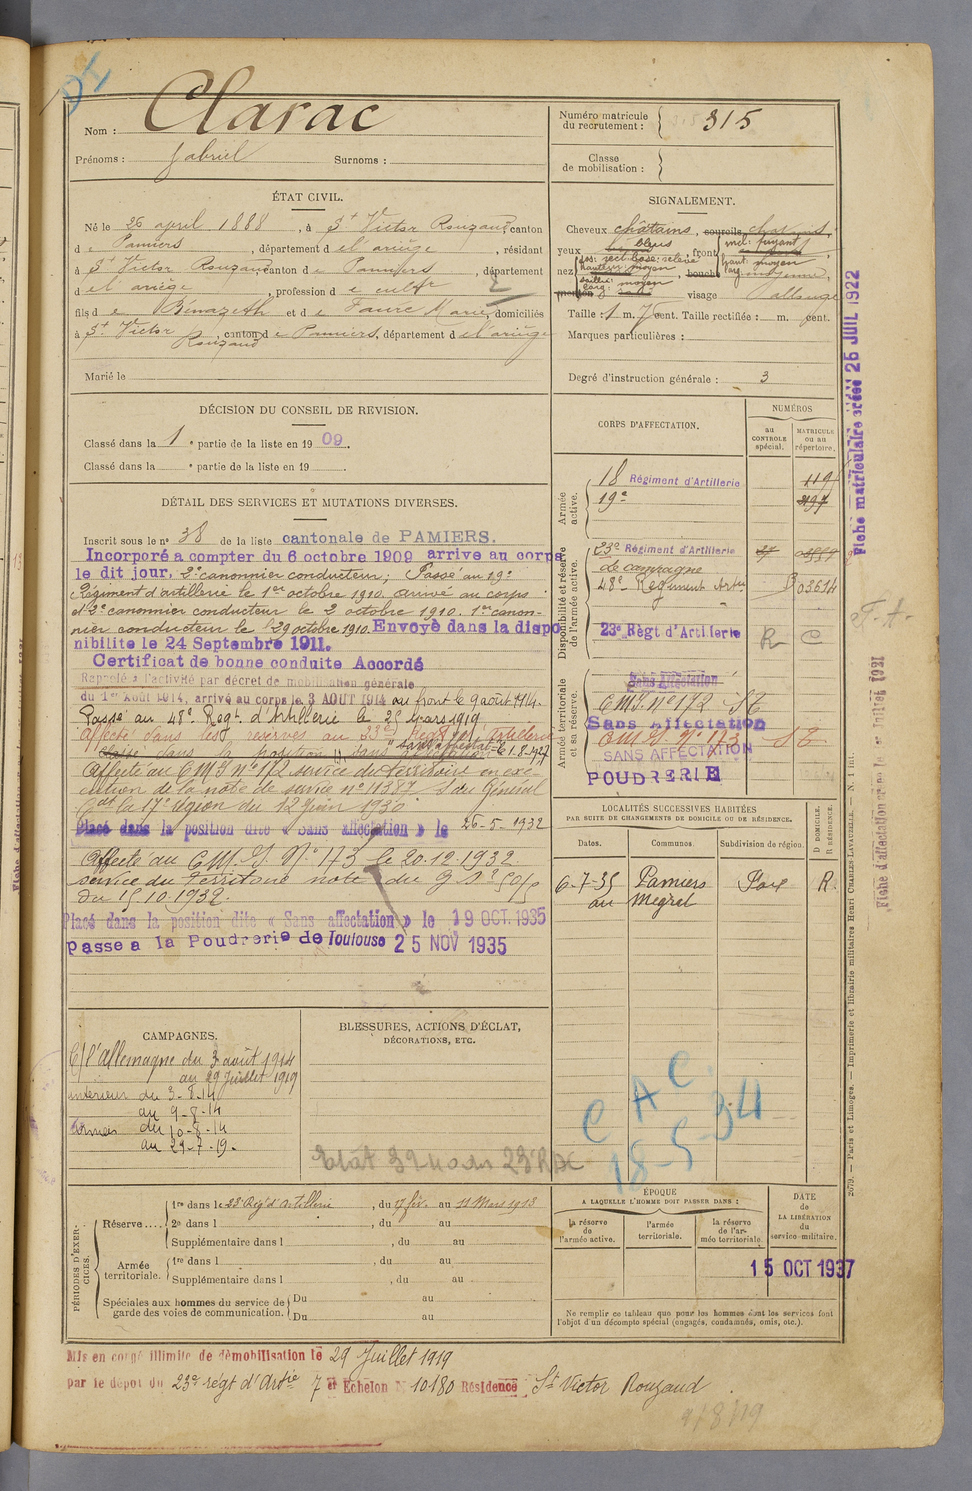 Nom : Clarac
Prénoms : Gabriel Surnoms :
Numéro matricule du recrutement : 315
Classe de mobilisation :
ÉTAT CIVIL.
Né le 26 april 1888, à St Victor Rouzaud canton
de Pamiers, département de l'ariège, résidant
à St Victor Rouzaud canton de Pamiers, département
de l'ariège, profession de cultr
fils de Bénazeth et de Faure Marie, domiciliés
à St Victor Rouzaud, canton de Pamiers, département de l'ariège
Marié le
SIGNALEMENT.
Cheveux châtains, sourcils châtains,
yeux bleus, front incl: fuyant
nez dos: rect. base: relevé
hauteur moyen
saillie: moyen
haut: moyen
larg: moyenne,
visage allongé
Taille : 1 m. 7 cent. Taille rectifiée : m. cent.
Marques particulières :
Degré d'instruction générale : 3
DÉCISION DU CONSEIL DE REVISION.
Classé dans la 1e partie de la liste en 1909.
Classé dans la e partie de la liste en 19
DÉTAIL DES SERVICES ET MUTATIONS DIVERSES.
Inscrit sous le n° 38 de la liste cantonale de PAMIERS.
Incorporé a compter du 6 octobre 1909 arrive au corps
le dit jour, 2e canonnier conducteur; Passé au 19e
Régiment d'artillerie le 1er octobre 1910. arrivé au corps
et 2e canonnier conducteur le 2 octobre 1910. 1er canon-
nier conducteur le 29 octobre 1910. Envoyé dans la dispo
nibilite le 24 Septembre 1911.
Certificat de bonne conduite Accordé
Rappelé à l'activité par décret de mobilisation générale
du 1er Aout 1914, arrivé au corps le 3 AOUT 1914 au front le 9 août 1914.
Passé au 48e Regt d'Artillerie le 25 Mars 1919
Affecté dans les reserves au 23e Regt Artillerie
classé dans la position dite "sans affectation" le 1.8.1927
Affecté au C M I N° 172 service du territoire en exé-
cution de la note de service n° 11387 S du Général
Ct la 17e région du 12 juin 1930
Placé dans la position dite « Sans affectation » le 26-5-1932
Affecté au C.M.I. N° 173 le 20.12.1932
service du territoire note du
du 15.10.1932.
Placé dans la position dite « Sans affectation » le 19 OCT. 1935
passe a la Poudrerie de Toulouse 25 NOV 1935
CORPS D'AFFECTATION.
NUMÉROS
au CONTROLE spécial.
MATRICULE ou au répertoire.
Armée active.
18 Régiment d'Artillerie 119
19e
Disponibilité et réserve de l'armée active.
23e Régiment d'Artillerie
de campagne
48e Régiment Artie 03614
23e Régt d'Artillerie R C
Armée territoriale et sa réserve.
Sans Affectation
C M I. N° 172 S T
Sans Affectation
C M I. N° 173 S T
SANS AFFECTATION
POUDRERIE
LOCALITÉS SUCCESSIVES HABITÉES
PAR SUITE DE CHANGEMENTS DE DOMICILE OU DE RÉSIDENCE.
Dates. Communes. Subdivision de région. D DOMICILE. R RÉSIDENCE.
6-7-35 Pamiers Foix R.
au Megret
CAMPAGNES.
C/ l'Allemagne du 3 août 1914
au 29 Juillet 1919
intérieur du 3-8-14
au 9-8-14
Armées du 10-8-14
au 29-7-19.
BLESSURES, ACTIONS D'ÉCLAT,
DÉCORATIONS, ETC.
C A C
18-5-34
PÉRIODES D'EXERCICES.
Réserve .... 1re dans le 23 Régt d'artillerie, du 17 fév. au 11 Mars 1913
2e dans l , du au
Supplémentaire dans l , du au
Armée territoriale. 1re dans l , du au
Supplémentaire dans l , du au
Spéciales aux hommes du service de garde des voies de communication. Du au
Du au
ÉPOQUE
A LAQUELLE L'HOMME DOIT PASSER DANS :
la réserve de l'armée active.
l'armée territoriale.
la réserve de l'armée territoriale.
DATE de LA LIBÉRATION du service militaire.
15 OCT 1937
Ne remplir ce tableau que pour les hommes dont les services font
l'objet d'un décompte spécial (engagés, condamnés, omis, etc.).
Mis en congé illimité de démobilisation le 29 Juillet 1919
par le dépot du 23e régt d'Artie 7e Echelon N° 10180 Résidence St Victor Rouzaud.
Fiche matriculaire créée le 25 JUIL 1922
2079. — Paris et Limoges. — Imprimerie et librairie militaires Henri CHARLES-LAVAUZELLE. — N. 1 int.